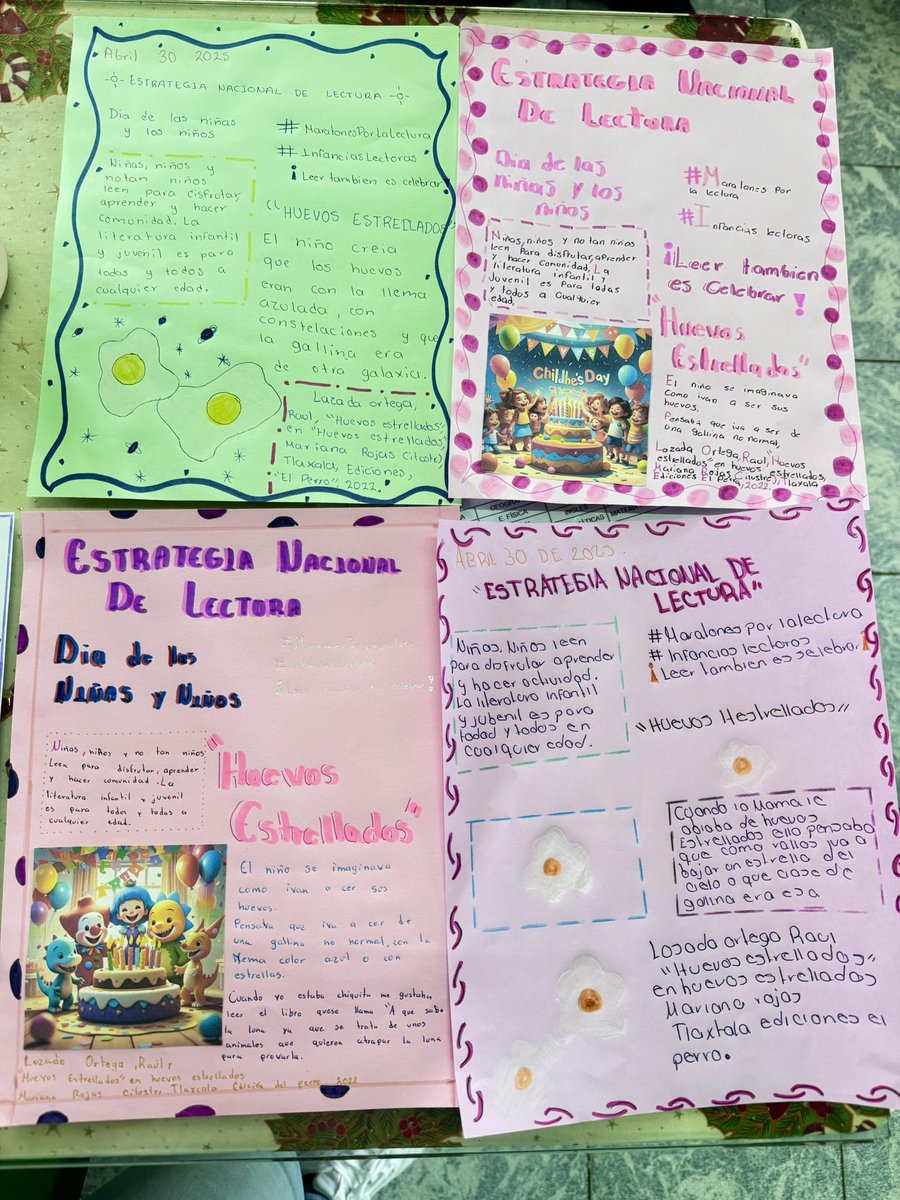 Abril 30 2025
ESTRATEGIA NACIONAL DE LECTURA
Día de las niñas
y los niños
Niñas, niños y
notan niños
leen para disfrutar,
aprender y hacer
comunidad. La
literatura infantil
y juvenil es para
todas y todos a
cualquier edad.
# MaratonesPorLaLectura
# InfanciasLectoras
¡Leer tambien es celebrar
"HUEVOS ESTRELLADOS"
El niño creia
que los huevos
eran con la llema
azulada, con
constelaciones y que
la gallina era
de otra galaxia.
Lozada ortega,
Raul, "Huevos estrellados"
en "Huevos estrellados"
Mariana Rojas
Tlaxala, Ediciones,
"El Perro", 2022.
ESTRATEGIA NACIONAL
DE LECTORA
Día de las
niñas y los
niños
#Maratones Por
la lectura
#Infancias lectoras
¡Leer tambien
es Celebrar!
Niñas, niños y no tan niños
leen Para disfrutar, aprender
y hacer comunidad, La
literatura infantil y
Juvenil es Para todas
y todos a Cualquier
edad,
"Huevos
Estrellados"
Childhe's Day
El niño se imaginava
Como ivan a ser sus
huevos,
Pensaba que iva a ser de
una gallina no normal,
Lozada Ortega, Raul, "Huevos
estrellados" en huevos estrellados,
Mariana Rojas (ilustre), Tlaxala
Ediciones El Perro, 2022.
ESTRATEGIA NACIONAL
DE LECTORA
Dia de las
NIÑAS y NIÑOS
Niñas, niños y no tan niños
Leen para disfrutar, aprender
y hacer comunidad. La
literatura infantil y juvenil
es para todos y todas a
cualquier edad.
"Huevos
Estrellados"
El niño se imaginava
como ivan a cer sus
huevos.
Pensava que iva a cer de
una gallina no normal, con la
Yema color azul o con
estrellas.
Cuando yo estaba chiquita me gustaba
leer el libro quese llama "A que sabe
la luna ya que se trata de unos
animales que quieron atrapar la luna
para provarla.
Lozado Ortega, Raúl,
"Huevos Estrellados" en huevos estrellados
Mariana Rojas Tlaxcala Edición del perro 2022
ABRIL 30 DE 2025.
"ESTRATEGIA NACIONAL DE
LECTURA"
Niños, Niños leen
para disfrutar aprender
y hacer actividad.
La literatura infantil
y jubenil es para
todad y todos en
cualquier edad.
#Maratones por la lectura
#Infancias lectoras
¡Leer tambien es selebrar!
"HUEVOS HESTRELLADOS"
Cuando la Mama le
ablaba de huevos
Estrellados ello pensaba
que como rallos iva a
bajar un estrella del
cielo o que clase de
gallina era esa
Losada ortega Raul
"Huevos estrellados"
en huevos estrellados
Mariana rojas
Tlaxtala ediciones el
perro.